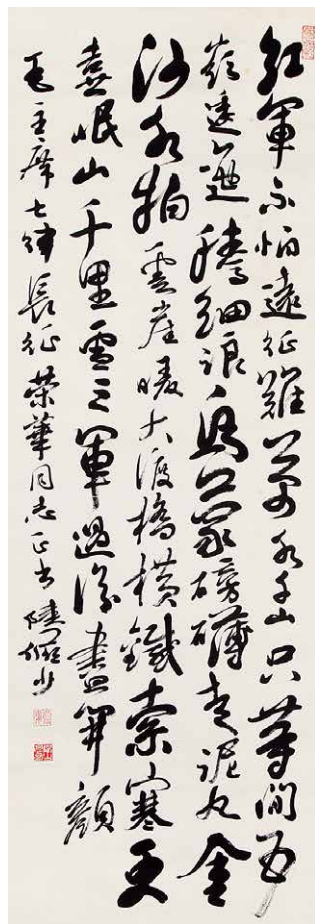 紅軍不怕遠征難萬水千山只等閒五
嶺逶迤騰細浪烏蒙磅礴走泥丸金
沙水拍雲崖暖大渡橋橫鐵索寒更
喜岷山千里雪三軍過後盡開顏
毛主席七律長征 榮華同志正書 陸儼少